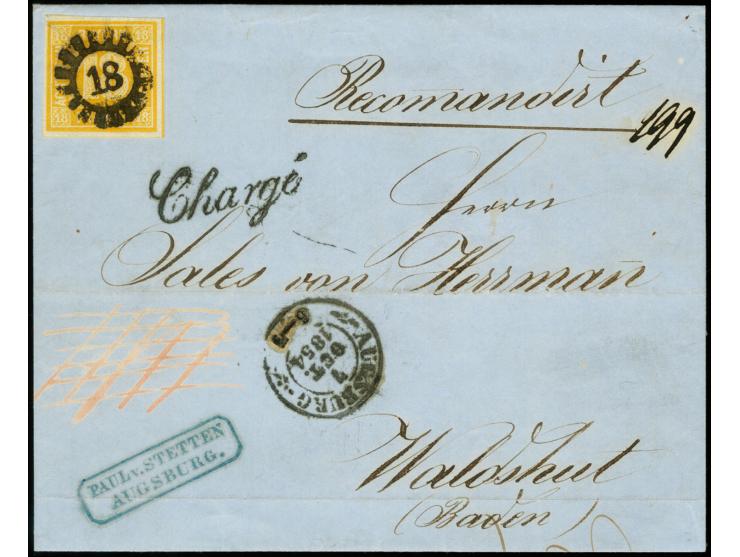 18
Recomandirt
199
Chargé
Herrn
Sales von Herrman̄
AUGSBURG
7
OCT.
1854
PAUL v. STETTEN
AUGSBURG.
Waldshut
(Baden)